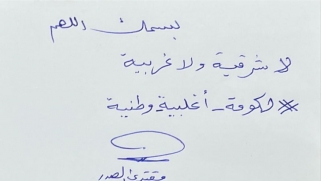 بسمك اللهم
لا شرقية ولا غربية
حكومة - أغلبية وطنية
مقتدى الصدر